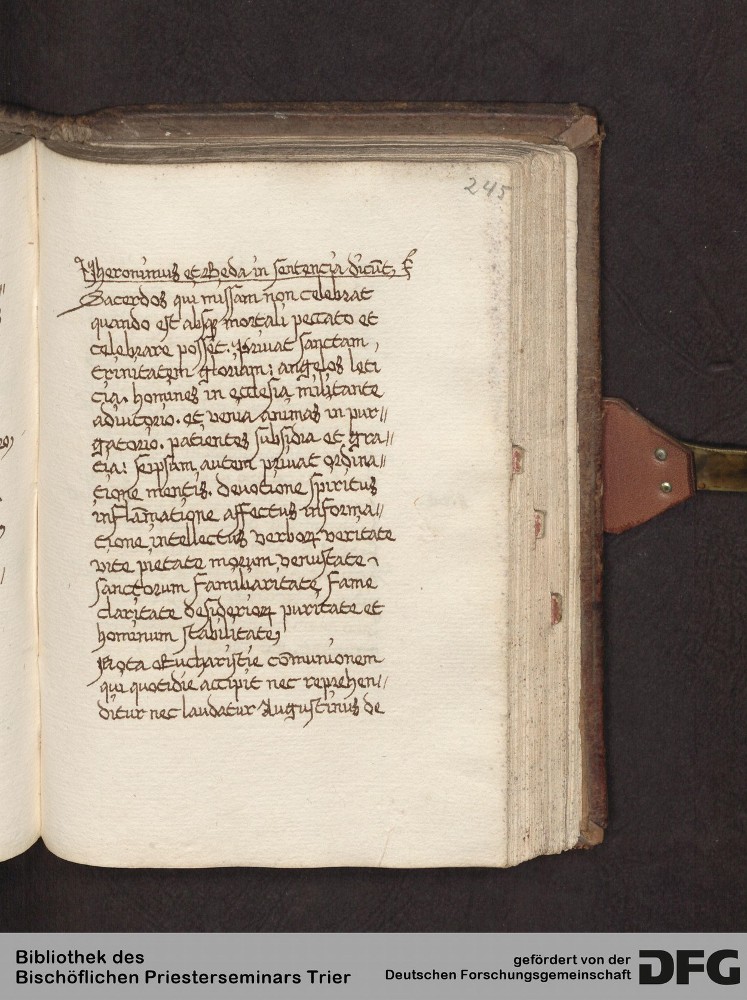 245
Iheronimus et Beda in sentencia dicūt,
Sacerdos qui missam non celebrat
quando est absqꝫ mortali peccato et
celebrare posset. Privat sanctam,
trinitatem gloriam: angelos leti
cia. homines in ecclesia militante
adiutorio. et venia animas in pur//
gatorio. patientes subsidia et gra//
tia: seipsam autem privat ordina//
tione mentis. devotione spiritus
inflāmatione affectus informa//
tione intellectus verboꝝ veritate
vite pietate morum venustate
sanctorum familiaritate, fame
claritate desiderioꝝ puritate et
hominum stabilitate,
Nota Eucharistie cōmunionem
qui quotidie accipit nec reprehen//
ditur nec laudatur Augustinus de
Bibliothek des
Bischöflichen Priesterseminars Trier
gefördert von der
Deutschen Forschungsgemeinschaft
DFG